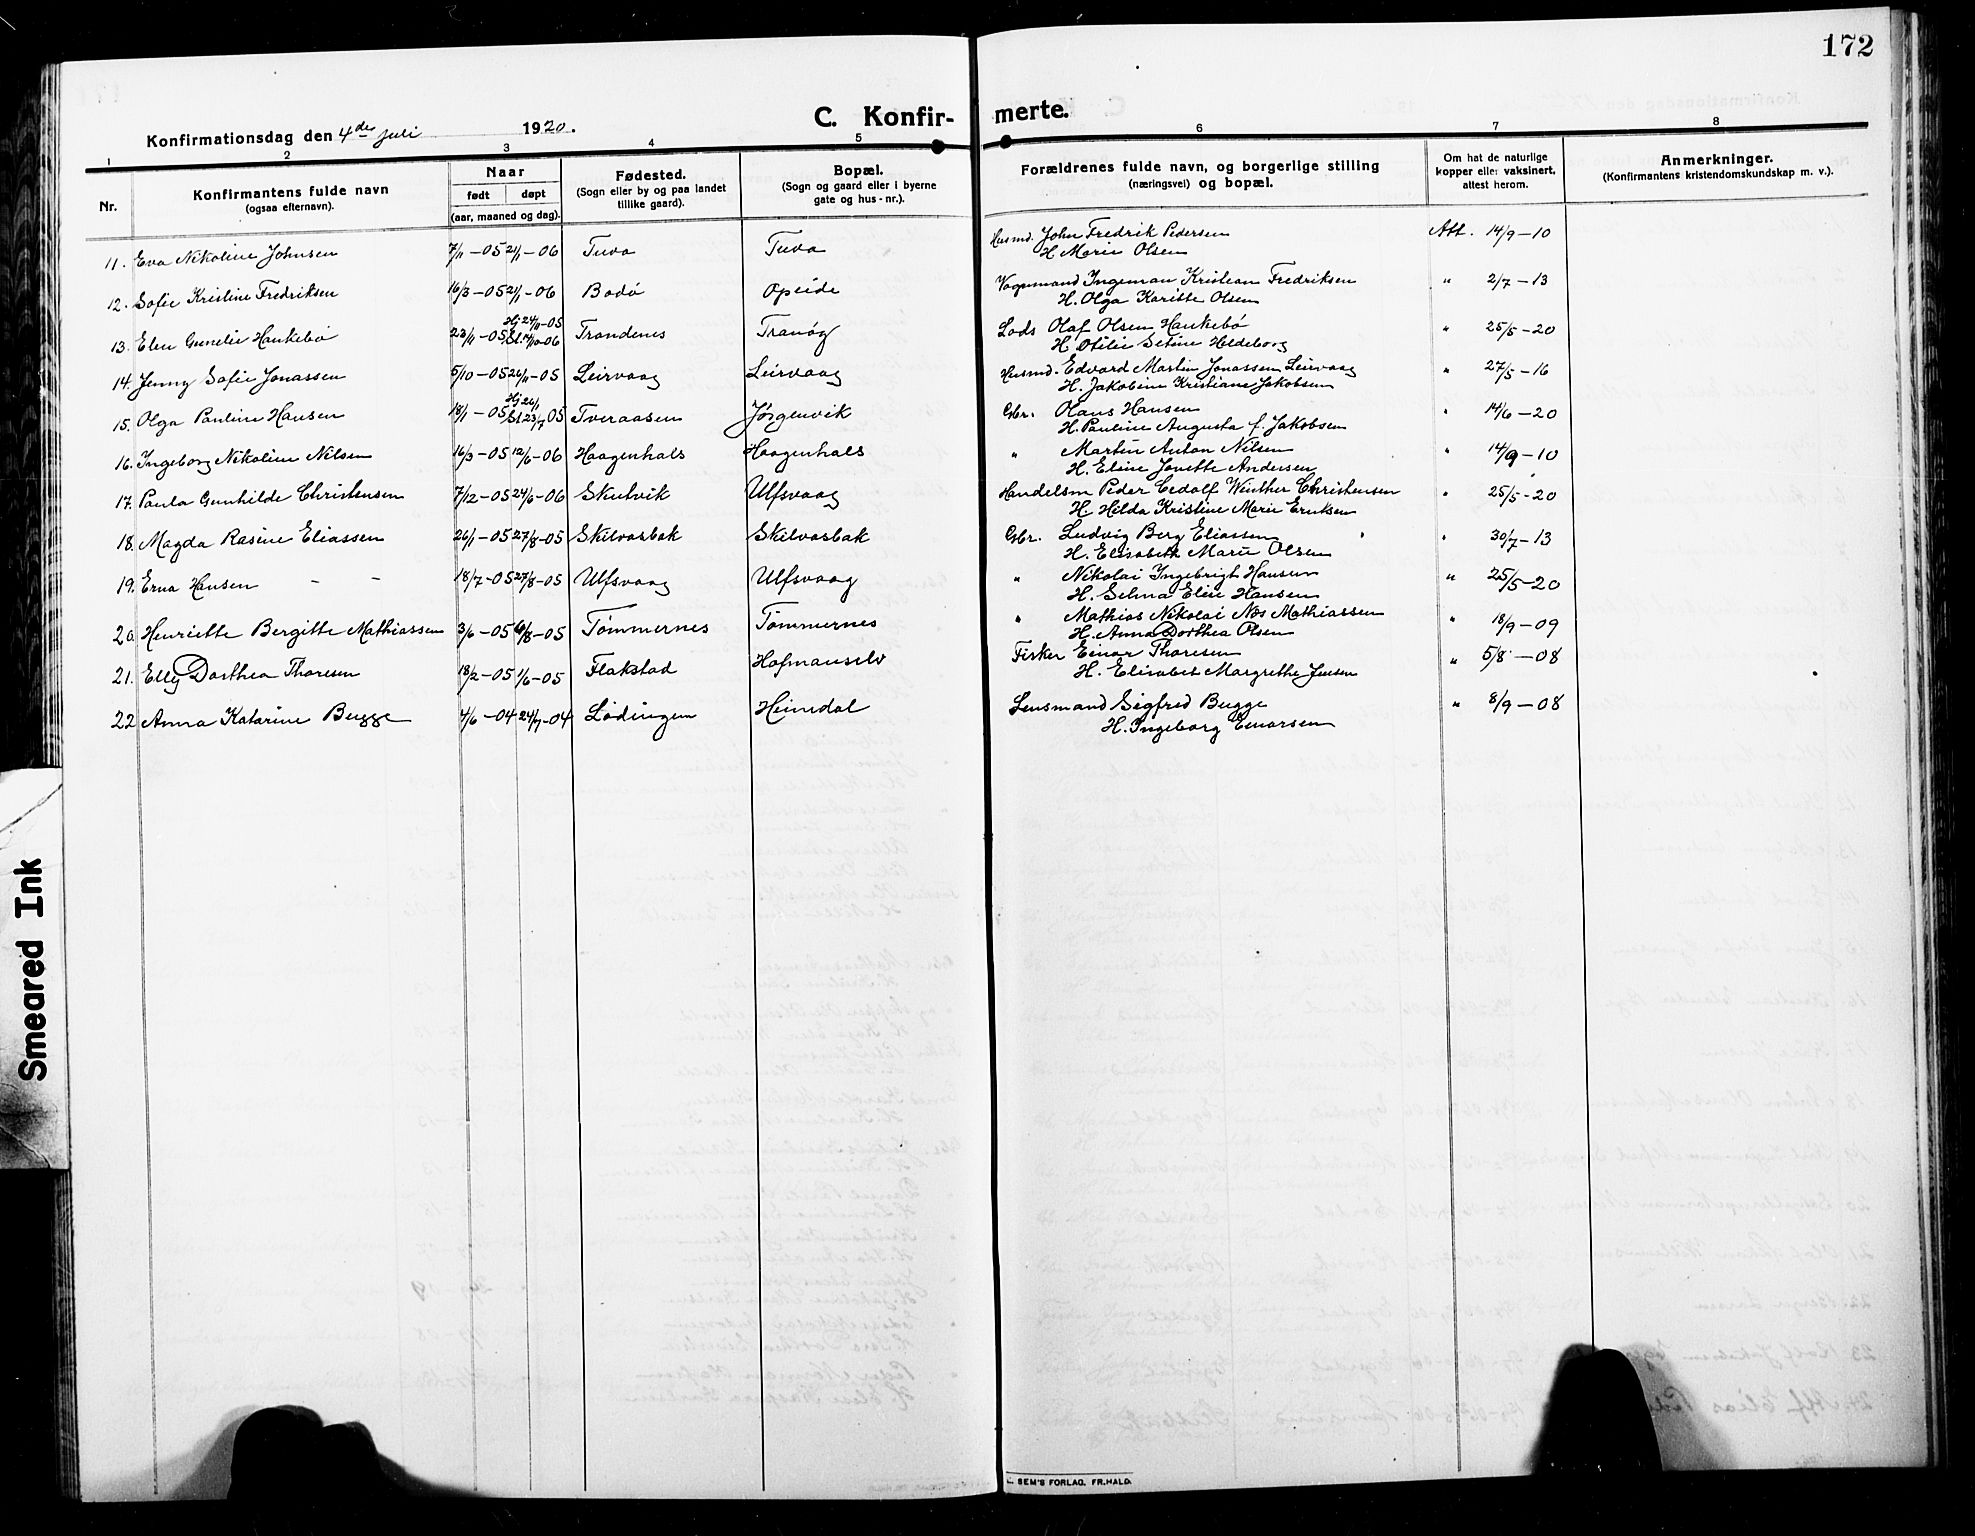 172
C. Konfir- merte.
Konfirmationsdag den 4de juli 1920.
1 2 3 4 5 6 7 8
Nr.
Konfirmantens fulde navn
(ogsaa efternavn).
Naar
født døpt
(aar, maaned og dag).
Fødested.
(Sogn eller by og paa landet
tillike gaard).
Bopæl.
(Sogn og gaard eller i byerne
gate og hus-nr.).
Forældrenes fulde navn, og borgerlige stilling
(næringsvei) og bopæl.
Om hat de naturlige
kopper eller vaksinert,
attest herom.
Anmerkninger.
(Konfirmantens kristendomskundskap m. v.).
11. Eva Nikoline Johnsen 7/11-05 21/1-06 Tuva Tuva Husmd. John Fredrik Pedersen Att. 14/9-10
H. Marie Olsen
12. Sofie Kristine Fredriksen 16/3-05 21/1-06 Bodø Opeide Vognmand Ingeman Kristean Fredriksen " 2/7-13
H. Olga Karitte Olsen
13. Elen Gunelie Haukebø 23/11-05 Hj 24/11-05 St. 14/10-06 Trondenes Tranøy Lods Olaf Olsen Haukebø " 25/5-20
H. Otilie Setine Heldeborg
14. Jenny Sofie Jonassen 5/10-05 26/11-05 Leirvaag Leirvaag Husmd. Edvard Martin Jonassen Leirvaag " 27/5-16
H. Jakobine Kristiane Jakobsen
15. Olga Pauline Hansen 18/1-05 Hj 26/1 St 23/7 05 Tveraasen Jørgenvik Gbr. Hans Hansen " 14/6-20
H. Pauline Augusta f. Jakobsen
16. Ingeborg Nikoline Nilsen 16/3-05 12/6-06 Haagenhals Haagenhals " Martin Anton Nilsen " 14/9-10
H. Eline Jonette Andersen
17. Paula Gunhilde Christensen 7/12-05 24/6-06 Skutvik Ulfsvaag Handelsm Peder Cedolf Winther Christensen " 25/5-20
H. Hilda Kristine Marie Eriksen
18. Magda Rasine Eliassen 26/1-05 27/8-05 Skilvasbak Skilvasbak Gbr. Ludvig Berg Eliassen " 30/7-13
H. Elisabeth Marie Olsen
19. Erna Hansen - - 18/7-05 27/8-05 Ulfsvaag Ulfsvaag " Nikolai Ingebrigt Hansen " 25/5-20
H. Selma Elise Hansen
20. Henriette Bergitte Mathiassen 3/6-05 6/8-05 Tømmernes Tømmernes " Mathias Nikolai Nos Mathiassen " 18/9-09
H. Anna Dorthea Olsen
21. Elly Dorthea Thoresen 18/2-05 1/6-05 Flakstad Hofmanselv Fisker Einar Thoresen " 5/8-08
H. Elisabet Margrethe Jensen
22 Anna Katarine Bugge 4/6-04 24/7-04 Lødingen Heimdal Lensmand Sigfred Bugge " 8/9-08
H. Ingeborg Einarsen
Smeared Ink
SEM'S FORLAG. FR.HALD.